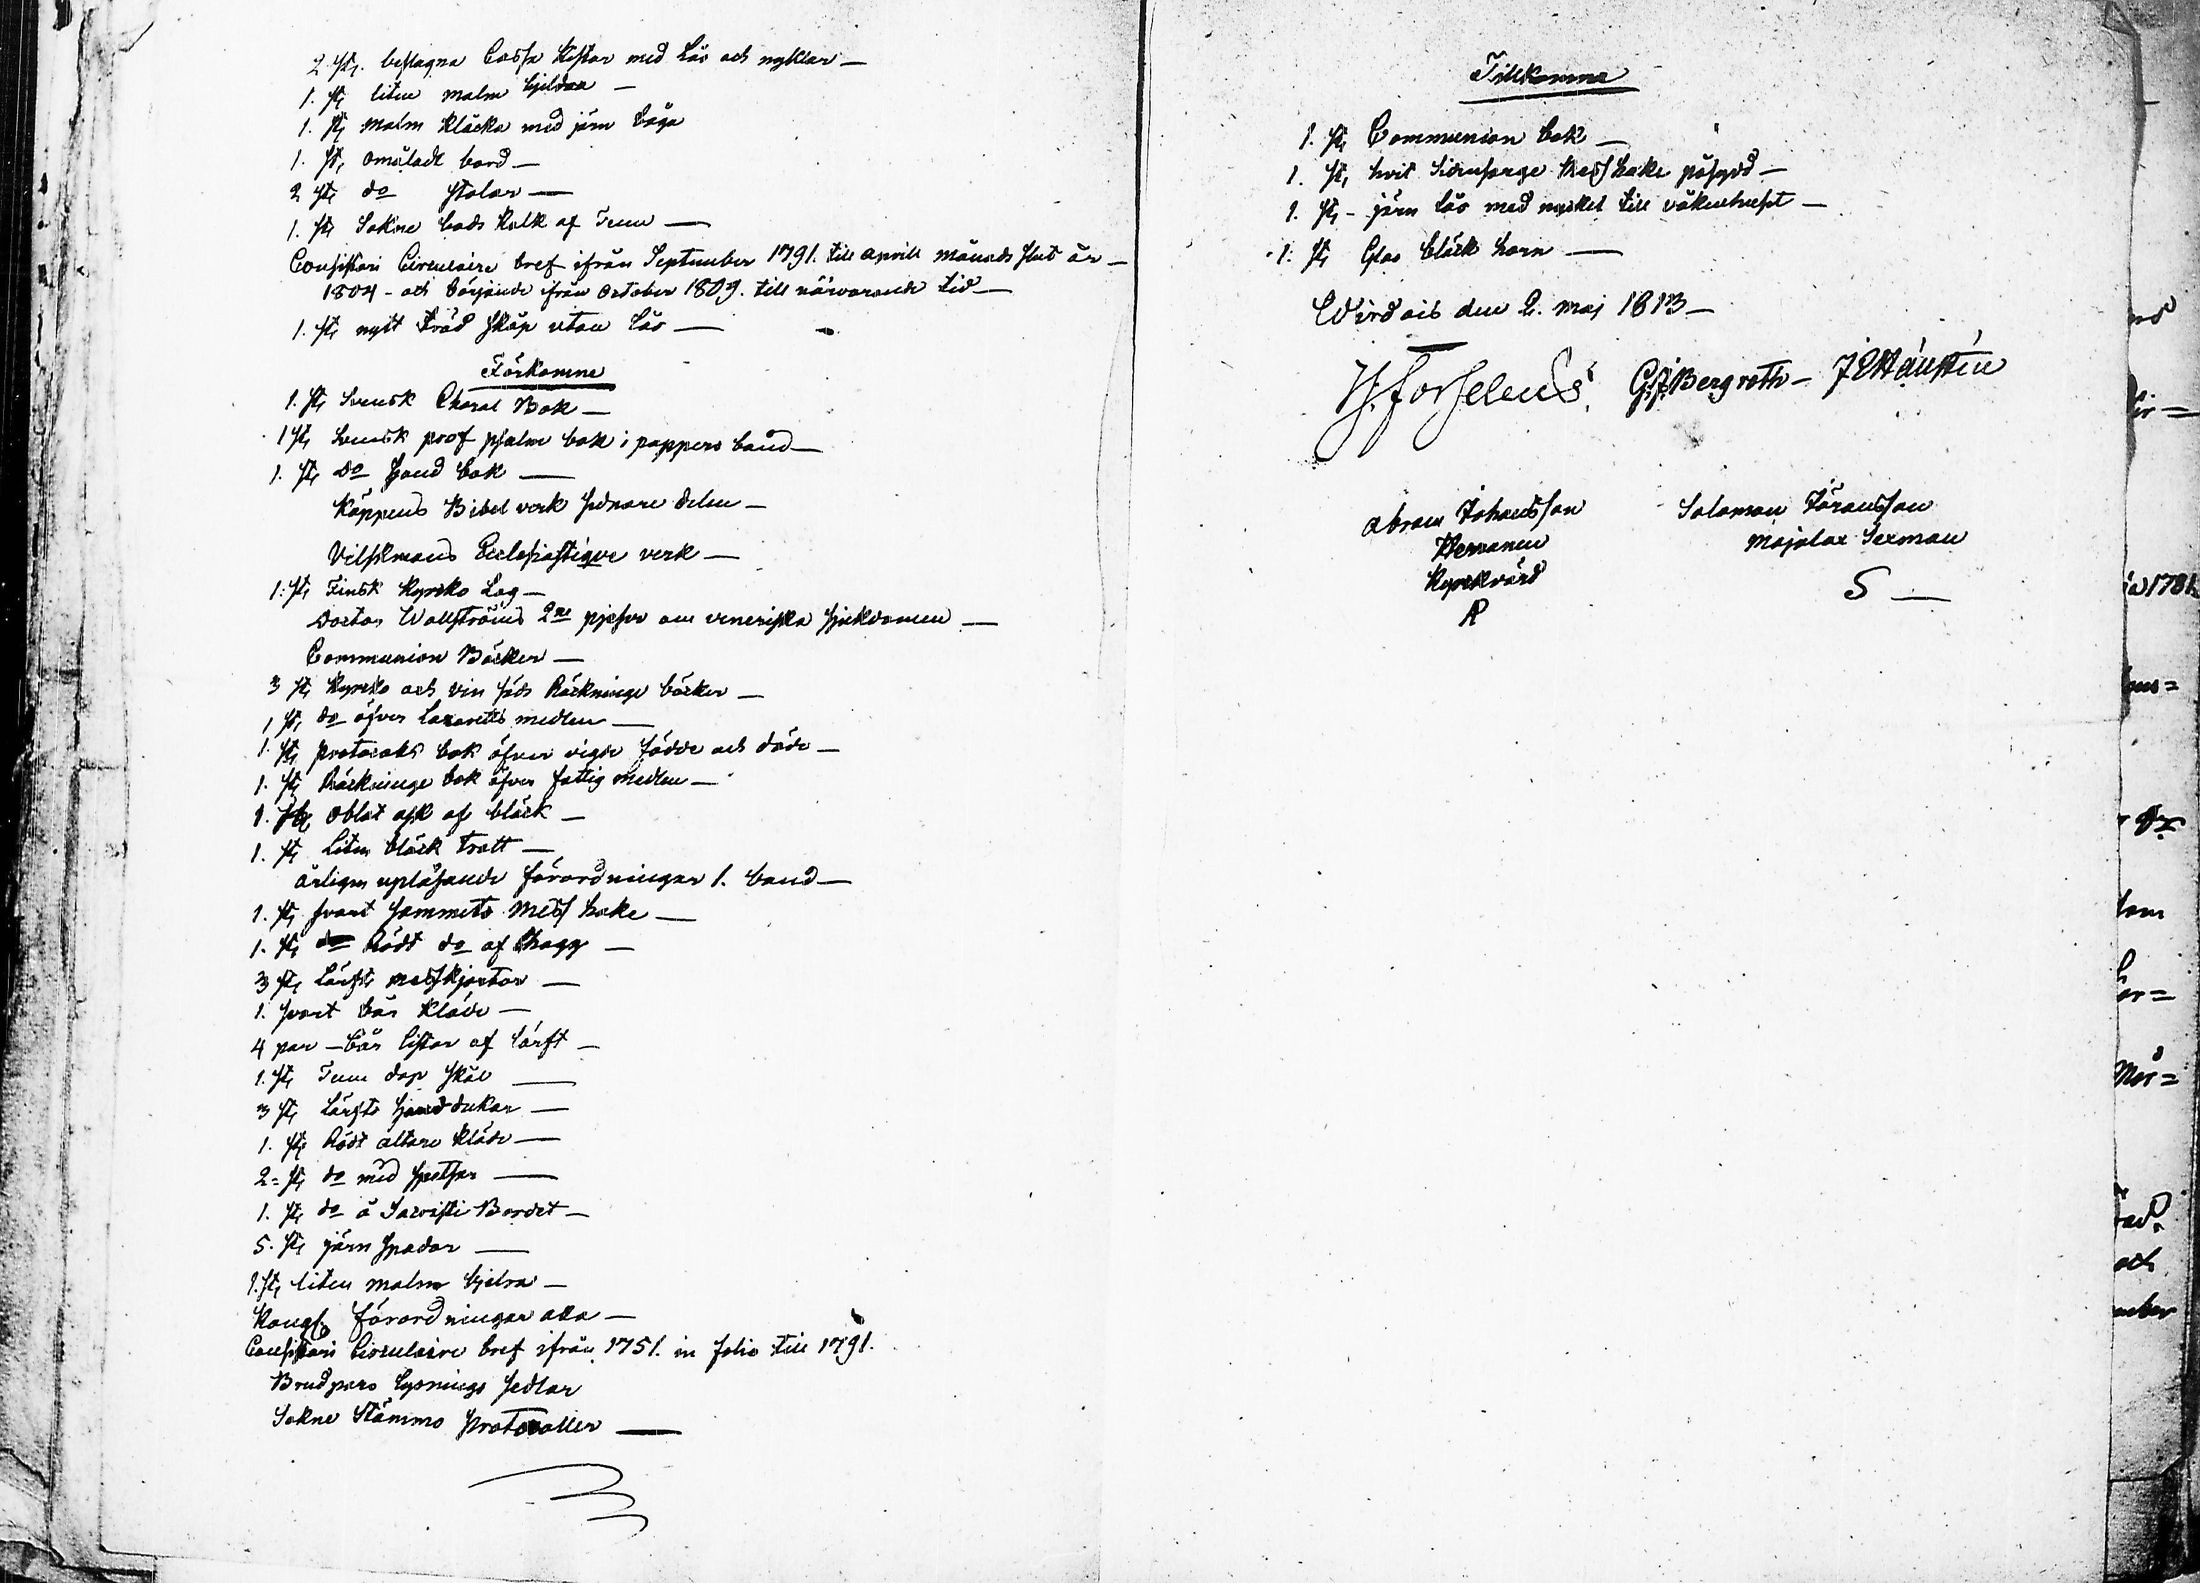 2 st. beslagna Cassa Kistor med Lås och nyklar —
1. st liten malm bjeldra —
1. st malm klåcka med järn båga
1. st, omålade bord —
2 st do stolar —
1. st Sokne buds Kalk af Tenn —
Consistorii Circulaire bref ifrån September 1791. till aprill månads slut år —
1804 - och börjande ifrån October 1809. till närvarande tid —
1. st nytt träd skåp utan lås —
Förkomne
1. st, Svensk Choral Bok —
1 st, Svensk prof psalm bok i pappers band —
1. st do Hand bok —
Köppens Bibel verk sednare delen —
Vilskmans Ecclesiastique verk —
1. st Finsk Kyrko Lag —
Doctor Wallströms 2ne pjeser om veneriska sjukdomen —
Communion Böcker —
3 st Kyrko och vin säds Räkninge böcker —
1 st, do öfver Lazaretts medlen —
1. st protocols bok öfver vigde födde och döde —
1. st Räckninge bok öfver fattig medlen —
1. st oblat ask af bläck —
1. st liten bläck tratt —
årligen upläsande förordningar 1. band —
1. st svart sammets Mess hake —
1. st do Rödt do af Shagg —
3 st, Lärfts messkjortor —
1. svart bår kläde —
4 par — bår listor af lärft —
1. st, Tenn dop skål —
3 st Lärfts handdukar —
1. st Rödt altare kläde —
2 = st, do med spetsar —
1. st, do å Sacristi Bordet —
5. st järn spadar —
1. st, liten malm bjelra —
Kongl. förordningar alla —
Consistorii Circulaire bref ifrån 1751. in folio till 1791.
Brudpars Lysnings sedlar
Sokne Stämmo protocoller —
Tillkomne
1. st, Communion bok —
1. st, hvit Sidensarge Messhake påsydd —
1. st - järn lås med nyckel till våkenhuset —
1. st, Glas bläck horn —
Wirdois den 2. maj 1813 —
H: Forselius. G: J: Bergroth —
Abram Johansson
Salomon Jöransson
Majalax Sexman
Kyrckvärd
S —